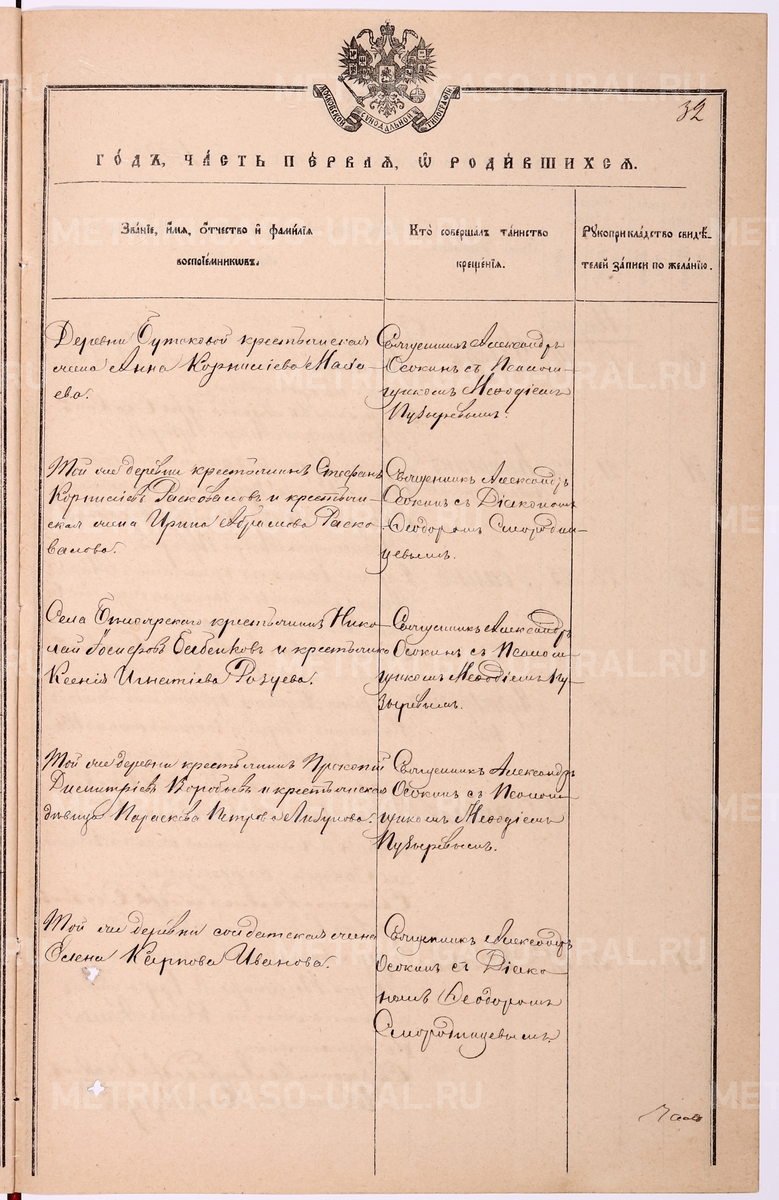 МОСКОВСКОЙ СѴНОДАЛЬНОЙ ТИПОГРАФІИ
32
ГО́ДЪ, ЧА́СТЬ ПЕ́РВАЯ, Ѡ҆ РОДИ́ВШИХСЯ.
Зва́ніе, и҆́мя, ѻ҆́тчество и҆ фами́лія
воспріе́мниковъ.
Кто̀ совершалъ та́инство
креще́нія.
Рꙋкоприкла́дство свидѣ́-
телей за́писи по жела́нію.
Деревни Бутаковой крестьянская
жена Анна Корнилiева
ева.
Священникъ Александръ
Осокинъ съ Псалом-
щикомъ Меѳодіемъ
Пузыревымъ.
Той же деревни крестьянинъ Стефанъ
Корнилiевъ Расковаловъ и крестьян-
ская жена Ирина Абрамова Раско-
валова.
Священникъ Александръ
Осокинъ съ Діакономъ
Ѳеодоромъ Смородин-
цевымъ.
Села крестьянинъ Нико-
лай Іосифовъ и крестьянка
Ксенія Игнатіева
Священникъ Александръ
Осокинъ съ Псалом-
щикомъ Меѳодіемъ Пу-
зыревымъ.
Той же деревни крестьянинъ Прокопій
Димитріевъ Коробьевъ и крестьянская
дѣвица Параскева Петрова
Священникъ Александръ
Осокинъ съ Псалом-
щикомъ Меѳодіемъ
Пузыревымъ.
Той же деревни солдатская жена
Елена Карпова Иванова.
Священникъ Александръ
Осокинъ съ Діако-
номъ Ѳеодоромъ
Смородинцевымъ.
METRIKI.GASO-URAL.RU
METRIKI.GASO-URAL.RU
METRIKI.GASO-URAL.RU
METRIKI.GASO-URAL.RU
METRIKI.GASO-URAL.RU
METRIKI.GASO-URAL.RU
METRIKI.GASO-URAL.RU